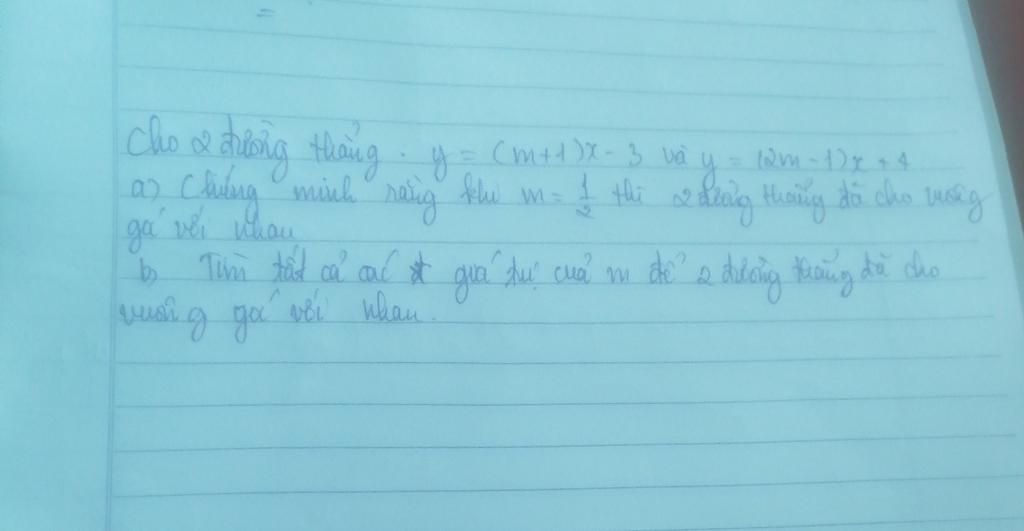 =
Cho 2 đường thẳng . y = (m+1)x - 3 và y = (2m-1)x + 4
a) Chứng minh rằng khi m = 1/2 thì 2 đường thẳng đã cho vuông
gó với nhau
b) Tìm tất cả các giá trị của m để 2 đường thẳng đã cho
vuông gó với nhau.